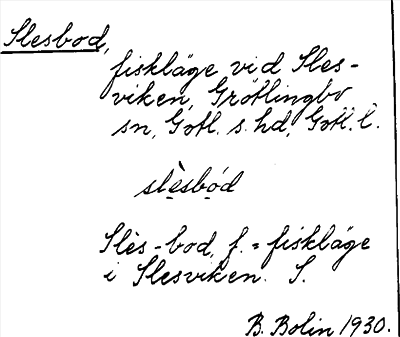 Slesbod,
fiskläge vid Sles-
viken, Grötlingbo
sn, Gotl. s. hd, Gotl. l.
slèsbód
Slès-bod, f. = fiskläge
i Slesviken. S.
B. Bolin 1930.